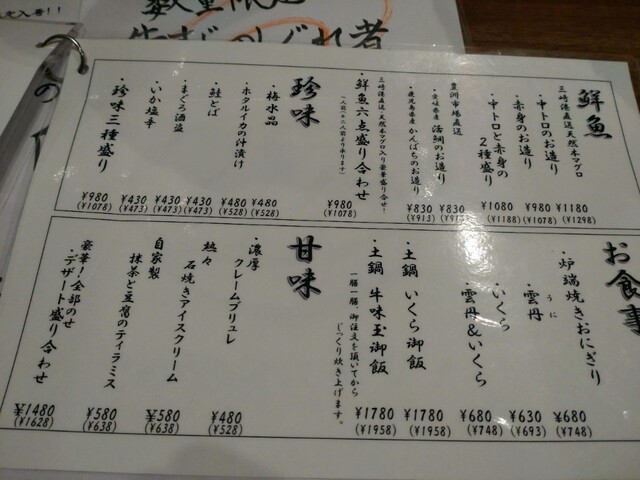 数量限定
鮮魚
三崎港直送天然本マグロ
・中トロのお造り ¥1180 (¥1298)
・赤身のお造り ¥980 (¥1078)
・中トロと赤身の2種盛り ¥1080 (¥1188)
豊洲市場直送
・愛媛県産 活鯛のお造り ¥830
・鹿児島県産 かんぱちのお造り ¥830 (¥913)
三崎港直送天然本マグロ入り豪華盛り合せ!
・鮮魚六点盛り合わせ ¥980 (¥1078)
(一人前(※二人前より承ります)
珍味
・梅水晶 ¥480 (¥528)
・ホタルイカの沖漬け ¥480 (¥528)
・鮭とば ¥430 (¥473)
・まぐろ酒盗 ¥430 (¥473)
・いか塩辛 ¥430 (¥473)
・珍味三種盛り ¥980 (¥1078)
お食事
・炉端焼きおにぎり ¥680 (¥748)
・雲丹 うに ¥630 (¥693)
・いくら
・雲丹&いくら ¥680 (¥748)
・土鍋 いくら御飯 ¥1780 (¥1958)
・土鍋 牛味玉御飯 ¥1780 (¥1958)
一膳一膳、御注文を頂いてから
じっくり炊き上げます。
甘味
・濃厚
クレームブリュレ ¥480 (¥528)
・熱々
石焼きアイスクリーム ¥580 (¥638)
・自家製
抹茶と豆腐のティラミス ¥580 (¥638)
豪華!全部のせ
・デザート盛り合わせ ¥1480 (¥1628)